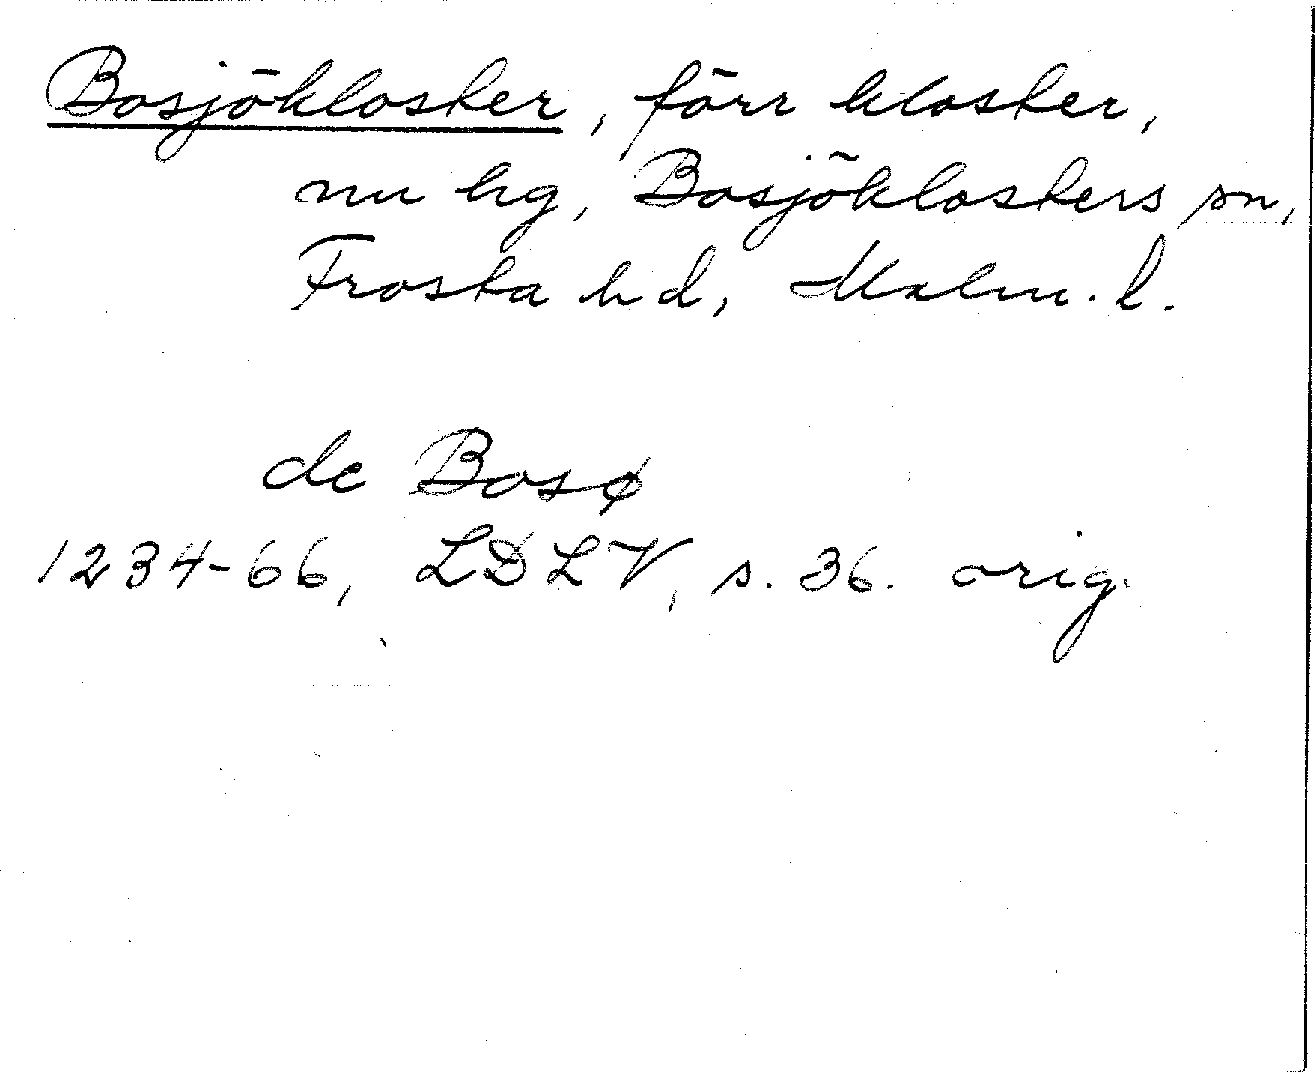 Bosjökloster, förr kloster,
nu hg, Bosjöklosters sn,
Frosta hd, Malm. l.
de Bosø
1234-66, LDLV, s. 36. orig.